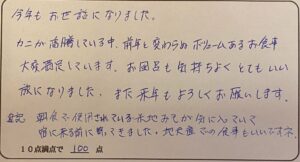 今年もお世話になりました。
カニが高騰している中、前年と変わらぬボリュームあるお食事
大変満足しています。お風呂も気持ちよくとてもいい
旅になりました。また来年もよろしくお願いします。
追記 朝食で使用されている木地みそが気に入っていて
宿に来る前に買ってきました。地元産での食事もいいですネ。
10点満点で 100 点